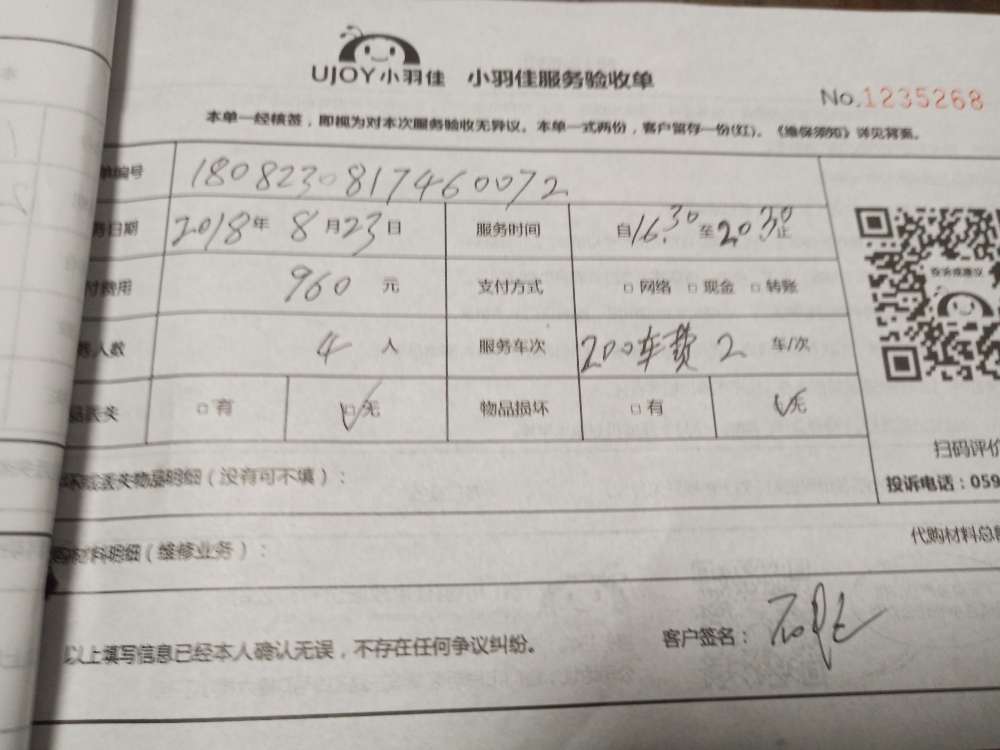 UJOY小羽佳 小羽佳服务验收单
No.1235268
本单一经核签，即视为对本次服务验收无异议。本单一式两份，客户留存一份(红)。《维保须知》详见背面。
单编号 1808230817460072
务日期 2018年 8月23日 服务时间 自16.30至20.30止
付费用 960 元 支付方式 □ 网络 □ 现金 □ 转账
务人数 4 人 服务车次 200车费 2 车/次
品丢失 □ 有 □ 无 物品损坏 □ 有 无
投诉或建议
扫码评价
坏或丢失物品明细（没有可不填）：
投诉电话：059
购材料明细（维修业务）：
代购材料总
以上填写信息已经本人确认无误，不存在任何争议纠纷。
客户签名：